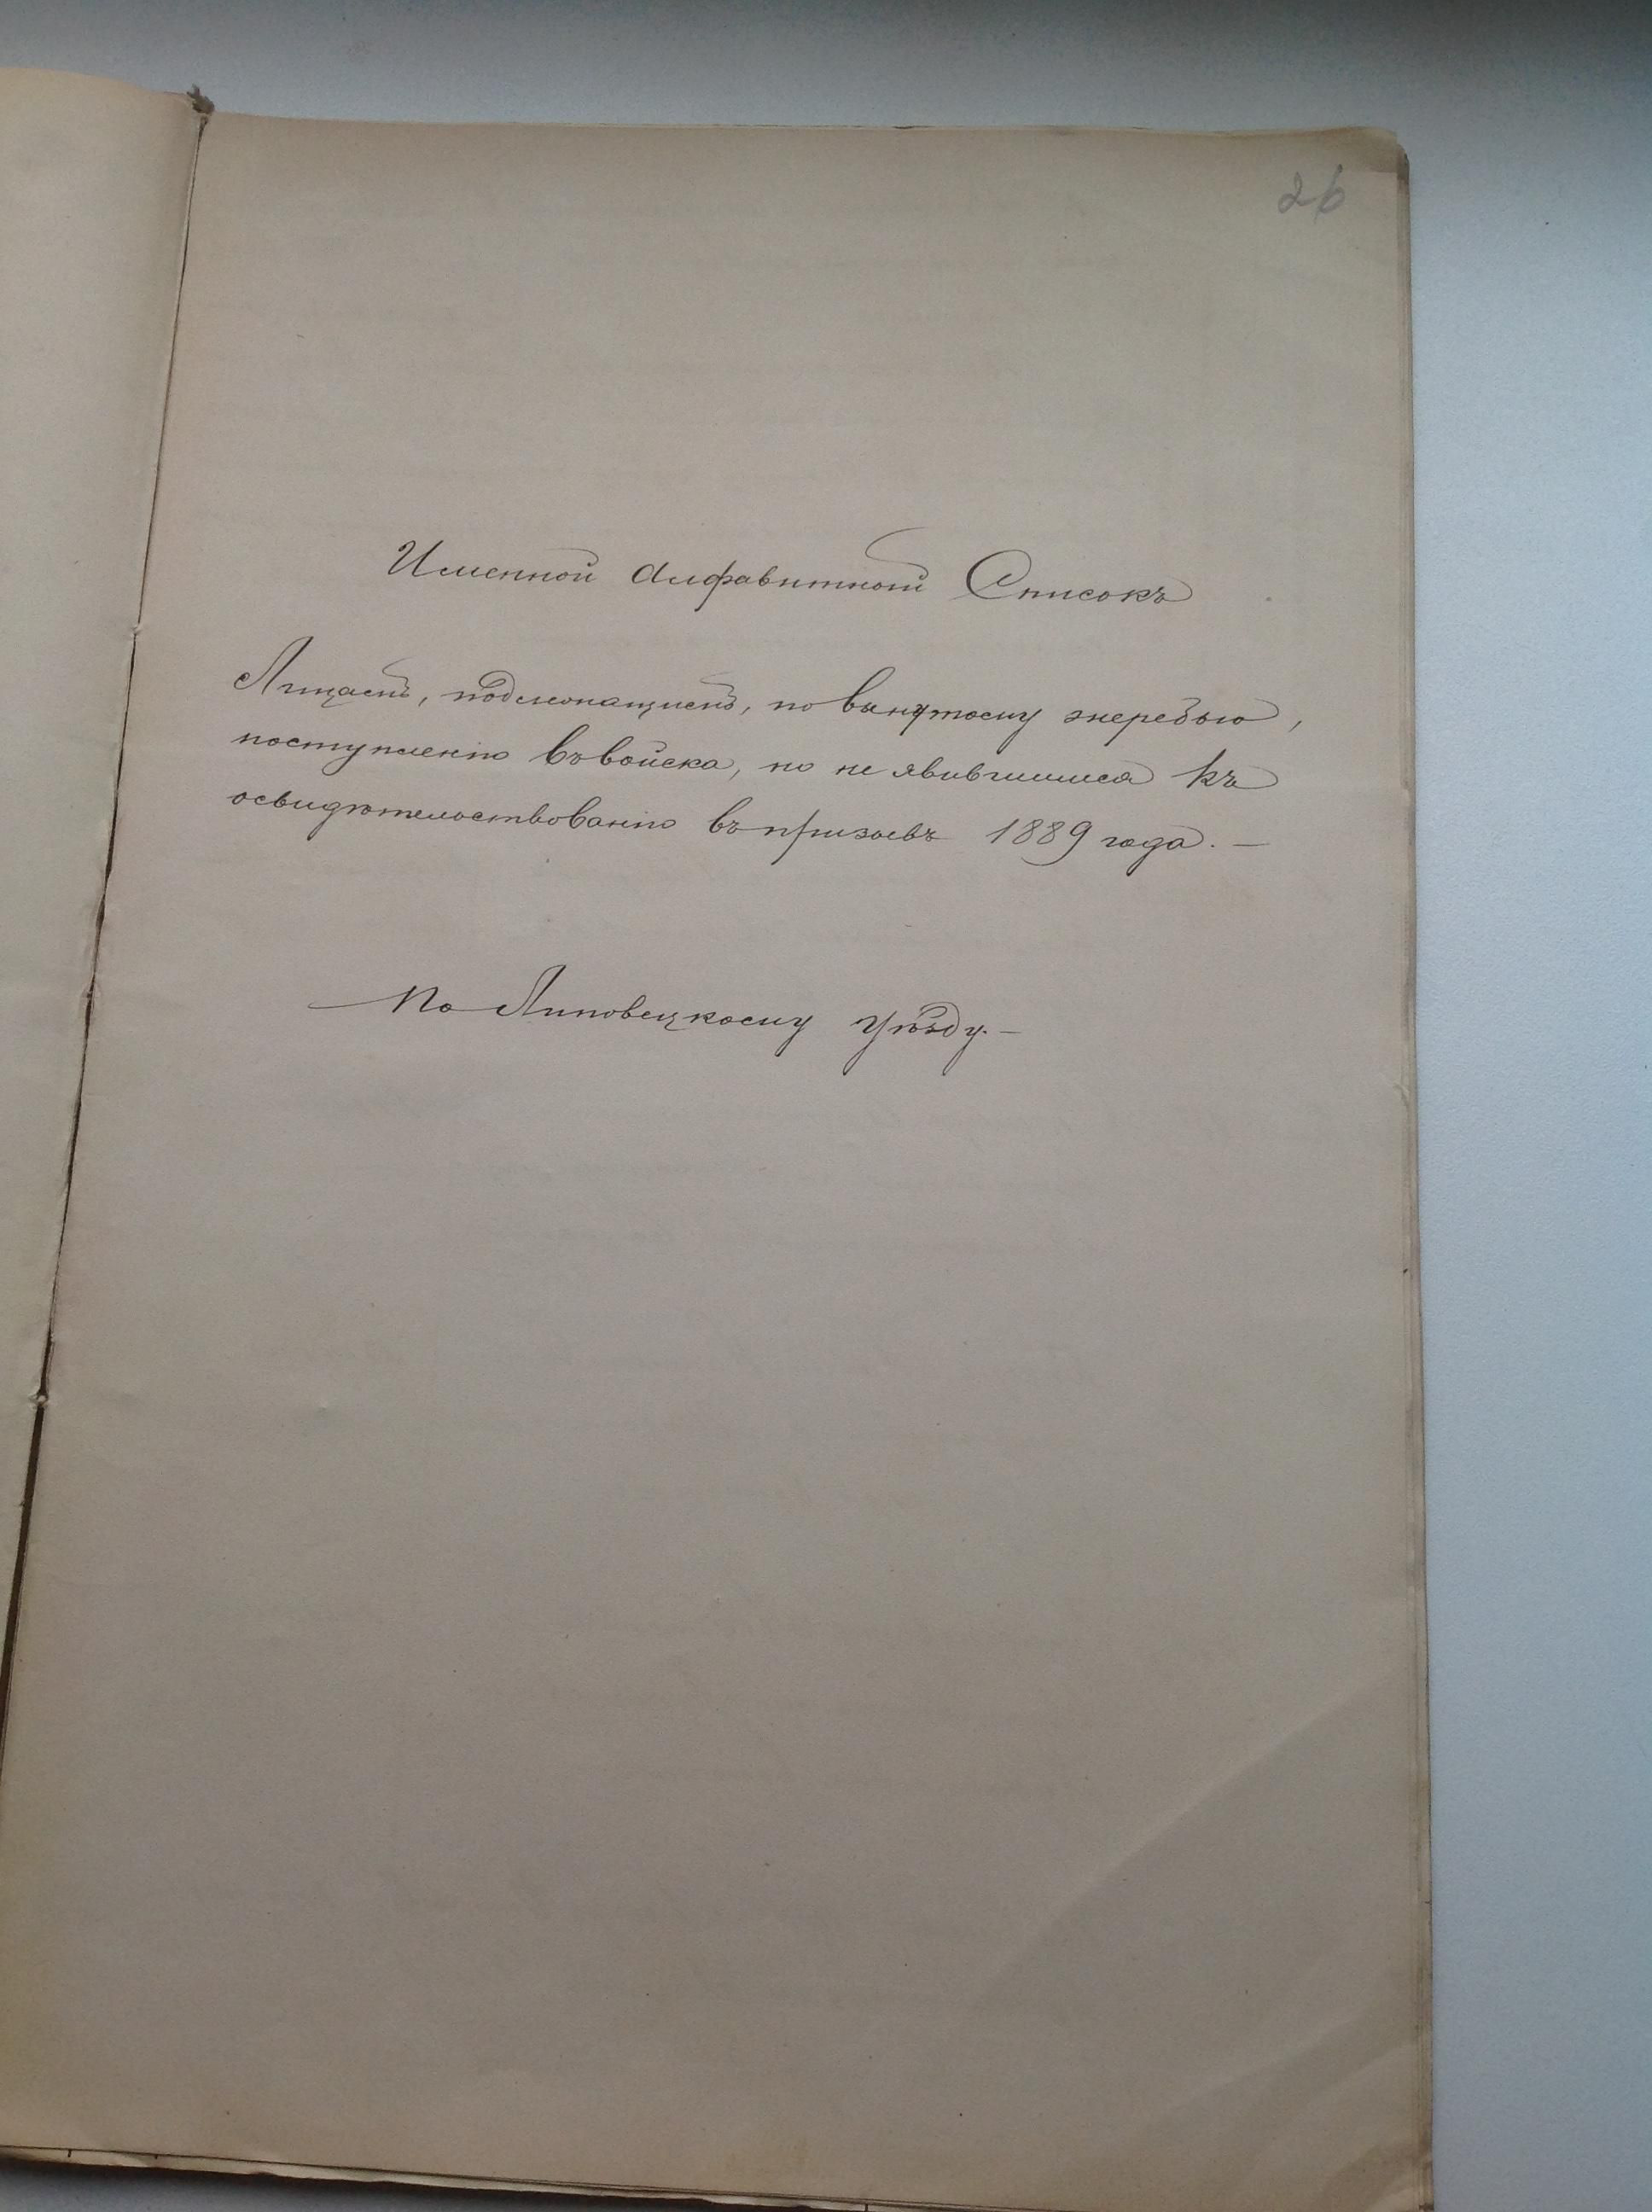 26
Именной Алфавитный Списокъ
Лицамъ, подлежащимъ, по вынутому жеребью,
поступленію въ войска, но не явившимися къ
освидѣтельствованію въ призывъ 1889 года. —
— По Липовецкому Уѣзду. —